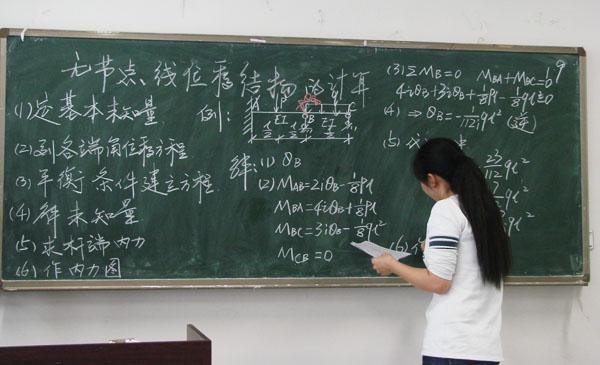 无节点线位移结构的计算
(1)定基本未知量
(2)列各端角位移方程
(3)平衡条件建立方程
(4)解未知量
(5)求杆端内力
(6)作内力图
例:
A EI B EI C
解:(1) θB
(2) MAB=2iθB-1/8Pl
MBA=4iθB+1/8Pl
MBC=3iθB-1/8ql²
MCB=0
(3) ΣMB=0 MBA+MBC=0
4iθB+3iθB+1/8Pl-1/8ql²=0
(4) ⇒ θB=
(5)
(6)作